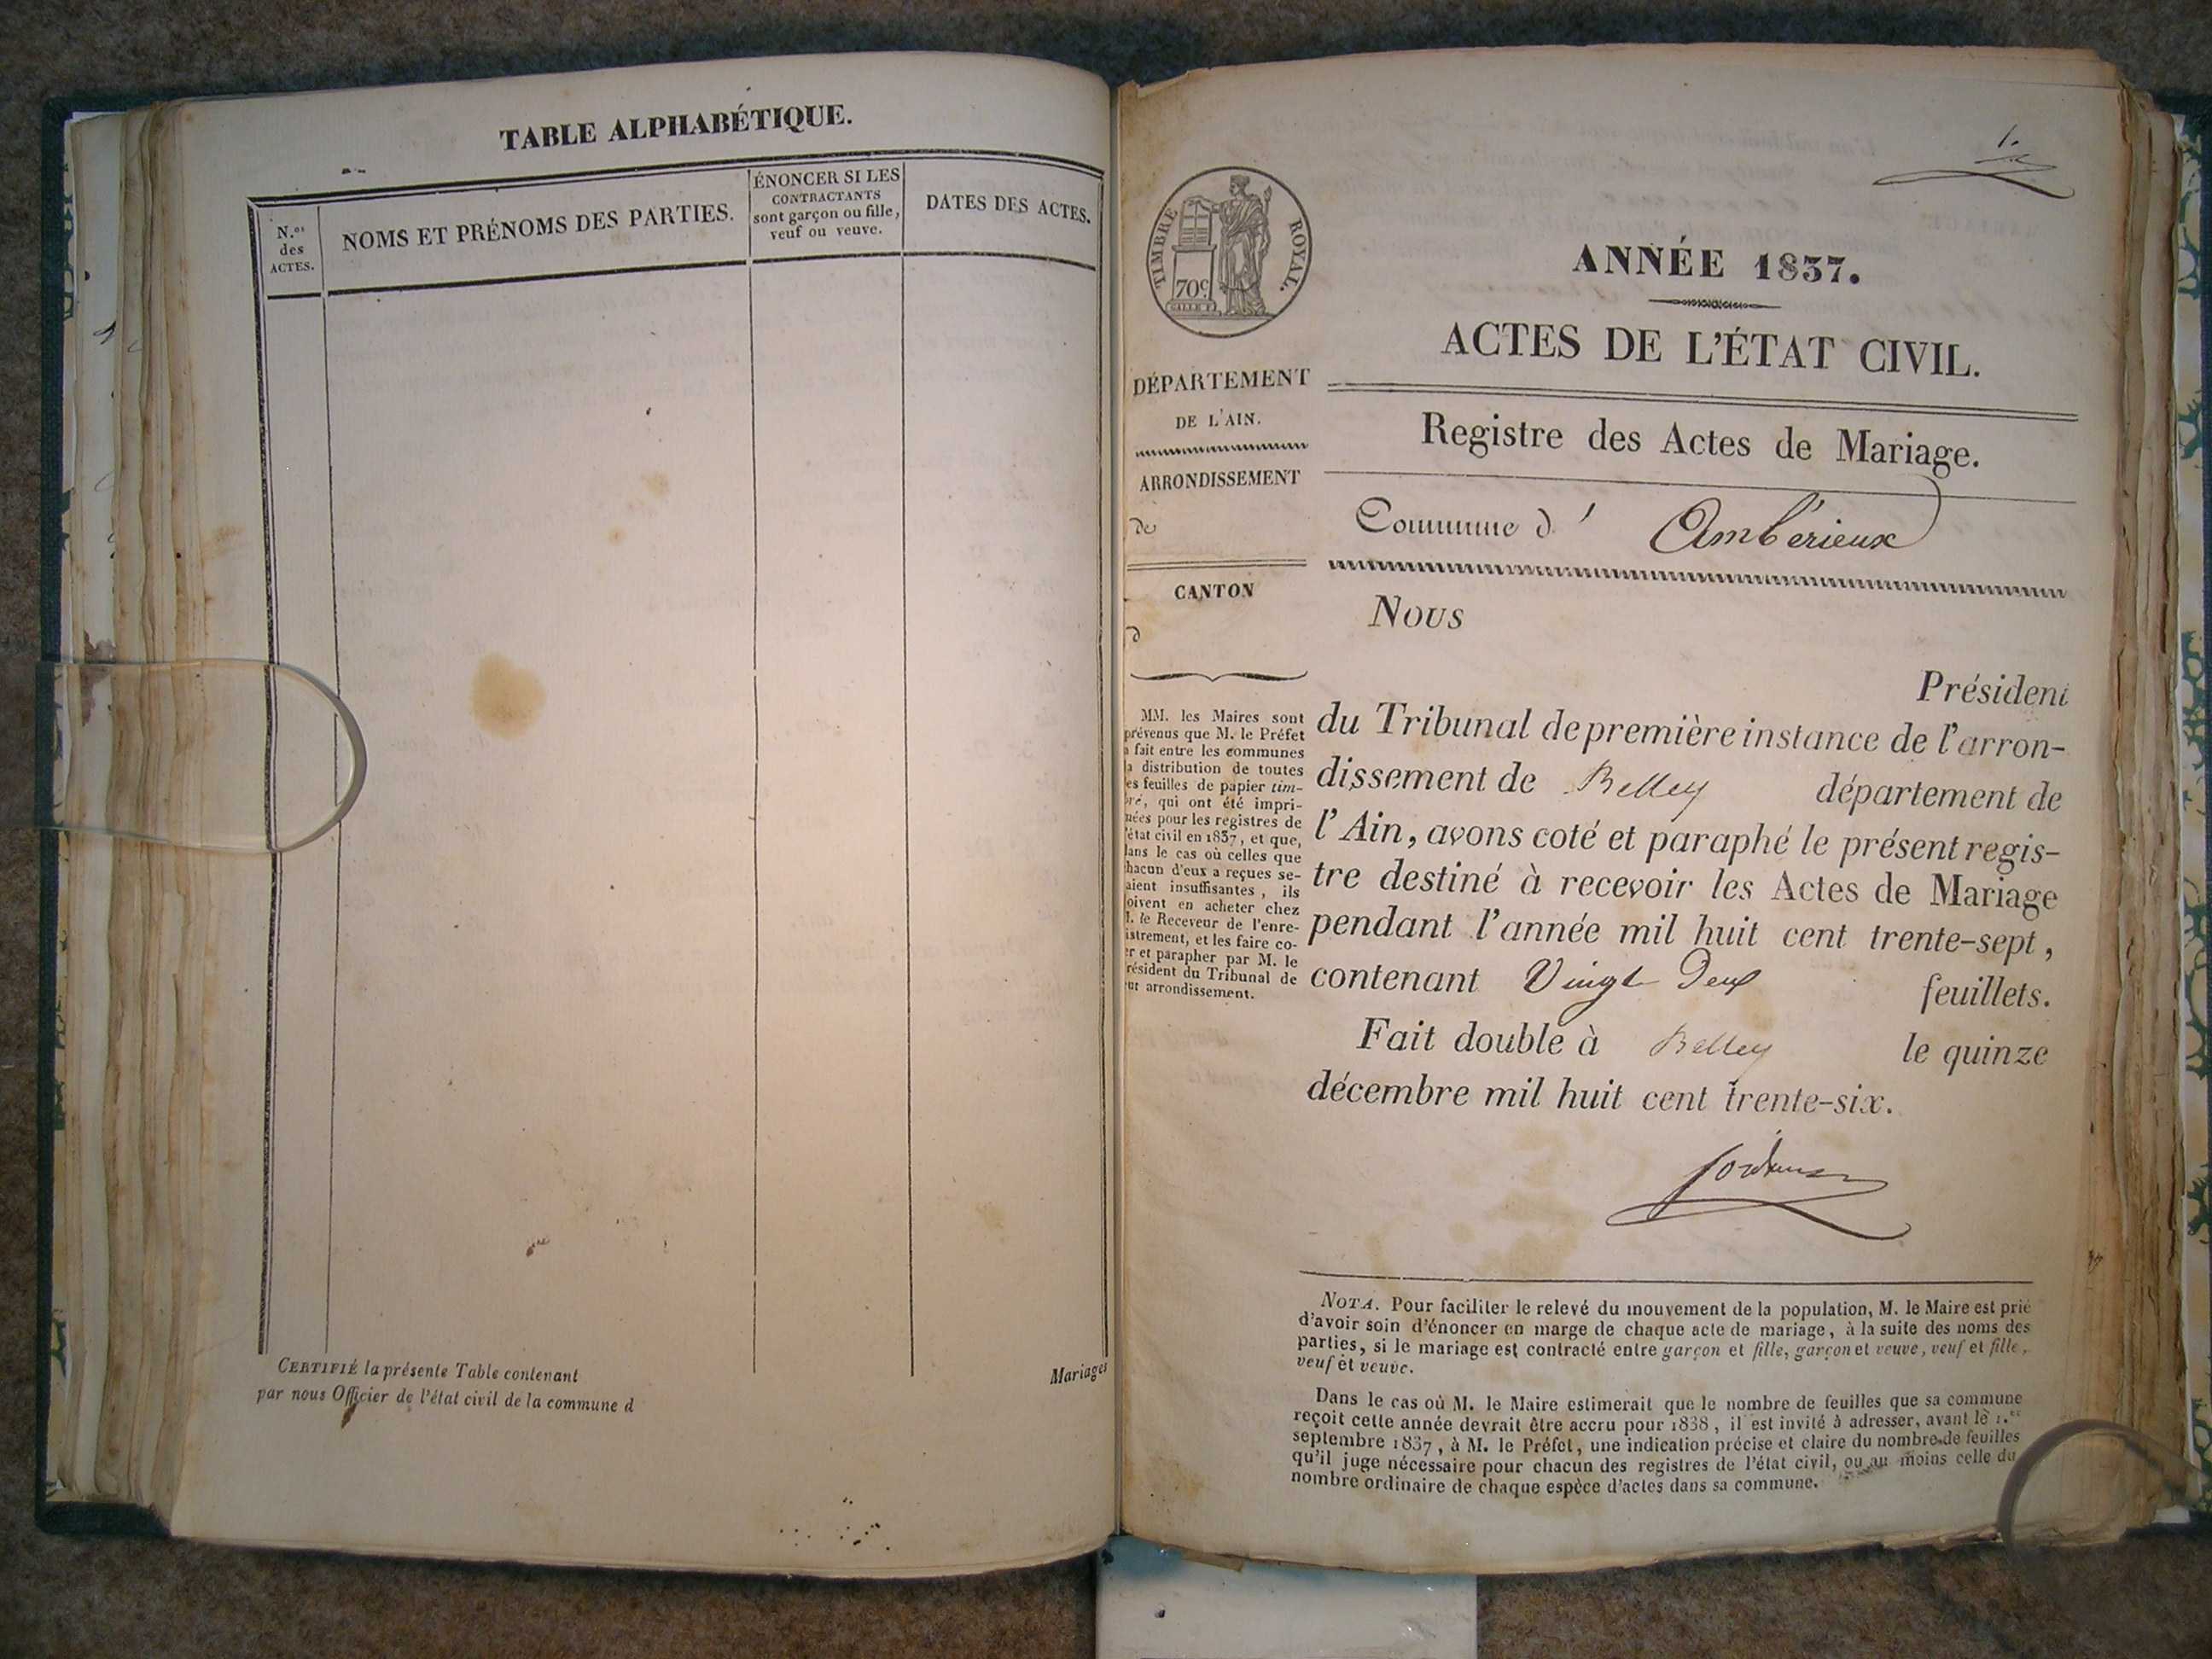 TABLE ALPHABÉTIQUE.
N.os
des
ACTES.
NOMS ET PRÉNOMS DES PARTIES.
ÉNONCER SI LES
CONTRACTANTS
sont garçon ou fille,
veuf ou veuve.
DATES DES ACTES.
CERTIFIÉ la présente Table contenant
Mariages
par nous Officier de l'état civil de la commune d
1.
TIMBRE ROYAL.
70c
ANNÉE 1837.
ACTES DE L'ÉTAT CIVIL.
DÉPARTEMENT
DE L'AIN.
ARRONDISSEMENT
de
CANTON
d
MM. les Maires sont
prévenus que M. le Préfet
a fait entre les communes
la distribution de toutes
es feuilles de papier tim-
bré, qui ont été impri-
mées pour les registres de
l'état civil en 1837, et que,
dans le cas où celles que
hacun d'eux a reçues se-
aient insuffisantes, ils
oivent en acheter chez
M. le Receveur de l'enre-
istrement, et les faire co-
er et parapher par M. le
résident du Tribunal de
ur arrondissement.
Registre des Actes de Mariage.
Commune d' Ambérieux
Nous
Président
du Tribunal de première instance de l'arron-
dissement de Belley département de
l'Ain, avons coté et paraphé le présent regis-
tre destiné à recevoir les Actes de Mariage
pendant l'année mil huit cent trente-sept,
contenant Vingt Deux feuillets.
Fait double à Belley le quinze
décembre mil huit cent trente-six.
NOTA. Pour faciliter le relevé du mouvement de la population, M. le Maire est prié
d'avoir soin d'énoncer en marge de chaque acte de mariage, à la suite des noms des
parties, si le mariage est contracté entre garçon et fille, garçon et veuve, veuf et fille,
veuf et veuve.
Dans le cas où M. le Maire estimerait que le nombre de feuilles que sa commune
reçoit cette année devrait être accru pour 1838, il est invité à adresser, avant le 1.er
septembre 1837, à M. le Préfet, une indication précise et claire du nombre de feuilles
qu'il juge nécessaire pour chacun des registres de l'état civil, ou au moins celle du
nombre ordinaire de chaque espèce d'actes dans sa commune.